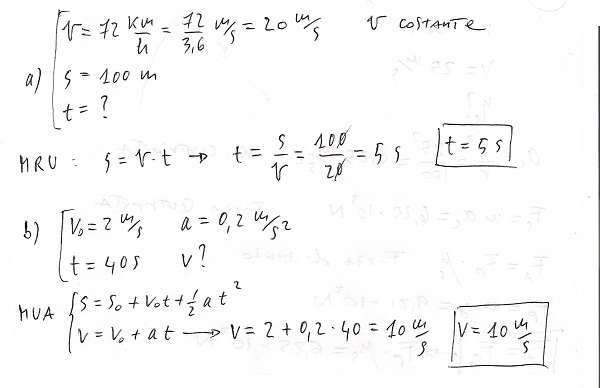 V = 72 km/h = 72/3,6 m/s = 20 m/s   V costante
a) s = 100 m
t = ?
MRU : s = V·t → t = s/V = 100/20 = 5 s   t = 5 s
b) V₀ = 2 m/s   a = 0,2 m/s²
t = 40 s   V?
MUA { s = s₀ + V₀t + ½ a t²
V = V₀ + at → V = 2 + 0,2·40 = 10 m/s   V = 10 m/s